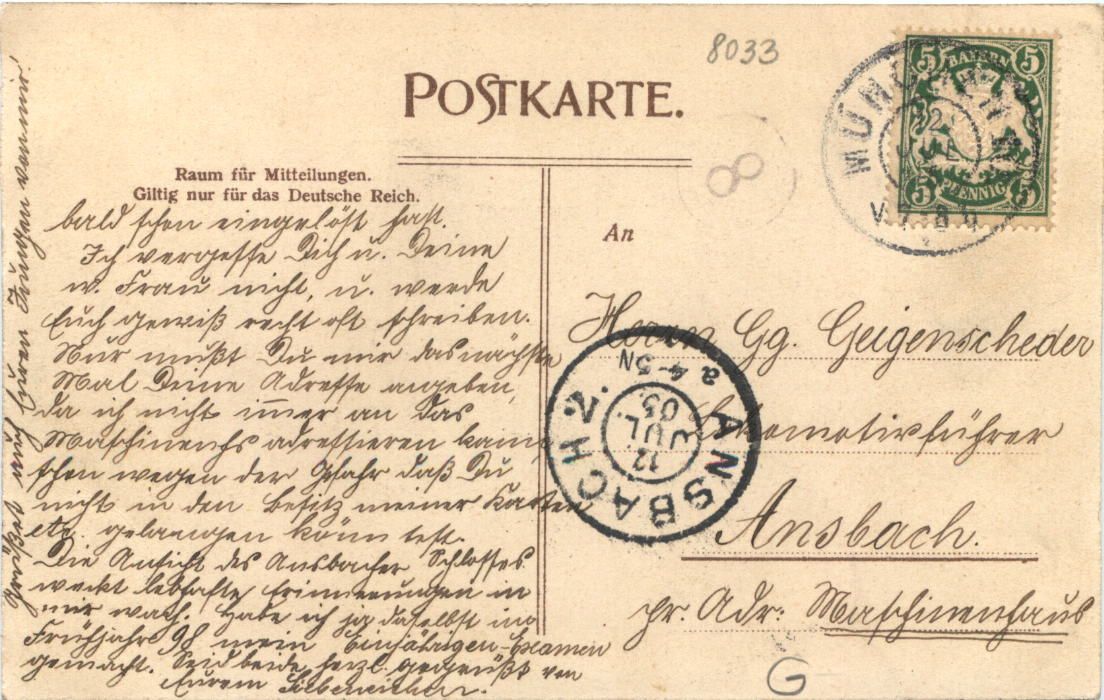 8033
POSTKARTE.
Raum für Mitteilungen.
Giltig nur für das Deutsche Reich.
bald schon eingelöst hast.
Ich vergesse Dich u. Deine
w. Frau nicht, u. werde
Euch gewiß recht oft schreiben.
Nur mußt Du mir das nächste
Mal Deine Adresse angeben,
da ich nicht immer an das
Maschinenhs adressieren kann
schon wegen der Gefahr daß Du
nicht in den Besitz meiner Karten
etc. gelangen könntest.
Die Ansicht des Ansbacher Schlosses
weckt lebhafte Erinnerungen in
mir wach. Habe ich ja daselbst im
Frühjahr 98 mein Einjährigen-Examen
gemacht. Seid beide herzl. gegrüßt von
Eurem
Grüßet auch Euren Jungen von mir!
BAYERN
5 5
5 5
PFENNIG
MÜNCHEN
12
V. 7-8
8
An
Herrn Gg. Geigenscheder
Lokomotivführer
Ansbach.
pr. Adr: Maschinenhaus
ANSBACH 2.
12.
JUL.
05.
a 4-5N
G